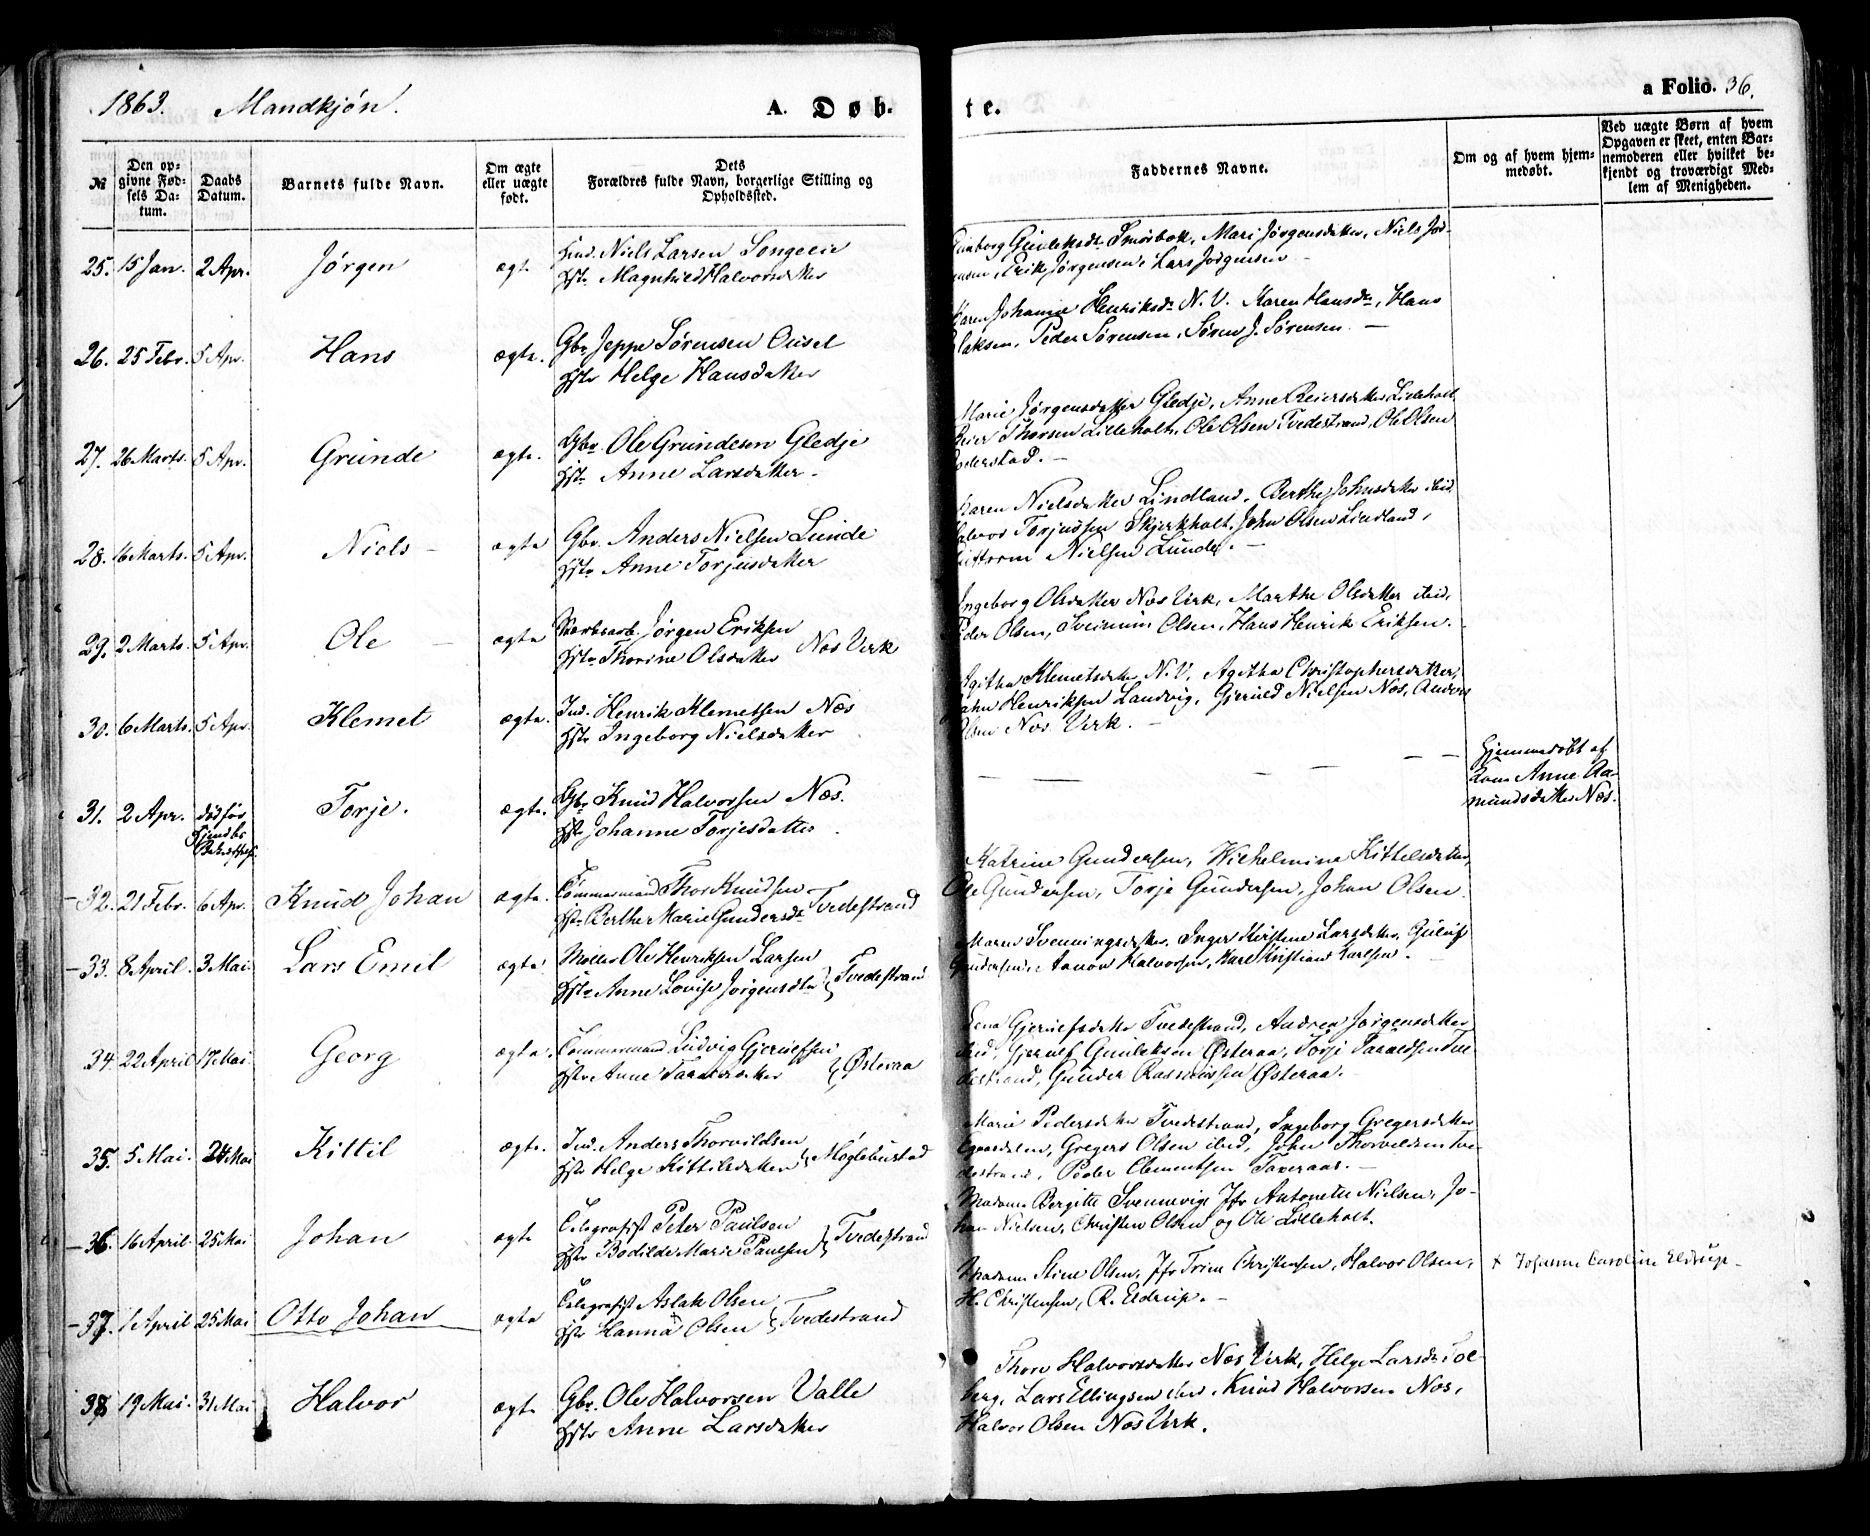 1863. Mandkjøn. A. Døbte. a Folio. 36.
№
Den opgivne Fødsels Datum.
Daabs Datum.
Barnets fulde Navn.
Om ægte eller uægte født.
Dets Forældres fulde Navn, borgerlige Stilling og Opholdssted.
Faddernes Navne.
Om og af hvem hjemmedøbt.
Ved uægte Børn af hvem Opgaven er skeet, enten Barnemoderen eller hvilket bekjendt og troværdigt Medlem af Menigheden.
25. 15 Jan. 2 Apr. Jørgen ægt.
Niels Larsen Songeeie
Hstr Magnhild Halvorsdatter
Gunleksdtr Smørbek, Mari Jørgensdatter, Niels Jør-
Erik Jørgensen, Lars Jørgensen
26. 25 Febr. 5 Apr. Hans ægte.
Gbr. Jeppe Sørensen Ousel
Hstr Helge Hansdatter
Karen Johanne Henriksdr N. V. Karen Hansdr, Hans
Peder Sørensen, Søren J. Sørensen
27. 26 Marts. 5 Apr. Grunde ægte.
Gbr. Ole Grundesen Gledje
Hstr Anne Larsdatter
Marie Jørgensdatter Gledje, Anne Reiersdatter Lilleholt
Reier Thorsen Lilleholt, Ole Olsen Tvedestrand, Ole Olsen
28. 6 Marts. 5 Apr. Niels ægte
Gbr. Anders Nielsen Lunde
Hstr Anne Torjusdatter
Karen Nielsdatter Lindland, Berthe Johnsdatter ibid,
Halvor Torjussen Skjerkholt, John Olsen Lindland,
Nielsen Lunde.
29. 2 Marts. 5 Apr. Ole ægte
Værksarb. Jørgen Eriksen
Hstr Thorine Olsdatter Næs Verk
Ingeborg Olsdatter Næs Verk, Marthe Olsdatter ibid,
Peder Olsen, Olsen, Hans Henrik Eriksen.
30. 6 Marts. 5 Apr. Klemet ægte.
Ind. Henrik Klemetsen Næs
Hstr Ingeborg Nielsdatter
Agitha Klemetsdatter N. V. Agitha Christophersdatter,
John Henriksen Landvig, Gjeruld Nielsen Næs, Anders
Olsen Næs Verk.
31. 2 Apr. død før Torje. ægte.
Gbr. Knud Halvorsen Næs.
Hstr Johanne Torjesdatter
Hjemmedøbt af
Anne Aa-
mundsdatter Næs.
32. 21 Febr. 6 Apr. Knud Johan ægte.
Tømmermand Thor Knudsen
Hstr Berthe Marie Gundersdr Tvedestrand
Katrine Gundersen, Wilhelmine Kittelsdatter,
Ole Gundersen, Torje Gundersen, Johan Olsen
33. 8 April. 3 Mai. Lars Emil ægte
Møller Ole Henriksen Larsen
Hstr Anne Lovise Jørgensdtr Tvedestrand
Maren Svenningsdatter, Inger Kirstine Larsdatter, Guluf
Gundersen, Halvorsen, Karl Kristian Karlsen.
34 22 April 17 Mai. Georg ægte.
Tømmermand Ludvig Gjerulfsen
Hstr Anne Taraldsdatter Østeraa
Lena Gjerulfsdatter Tvedestrand, Andrea Jørgensdatter
ibid, Gjerulf Gunleksen Østeraa, Torje Taraldsen Tve-
destrand, Gunder Rasmussen Østeraa.
35. 5 Mai. 24 Mai Kittil ægte.
Ind. Anders Thorvildsen
Hstr Helge Kittilsdatter Møglebustad
Marie Pedersdatter Tvedestrand, Ingeborg Gregersdatter
Gregers Olsen ibid, John Thorvildsen Tve-
destrand, Peder Clementsen Taxeraas.
36. 16 April 25 Mai Johan ægte
Telegrafist Peter Paulsen
Hstr Bodilde Marie Paulsen Tvedestrand
Madame Bergitte Svennevig Jfr Antonette Nielsen, Jo-
han Nielsen, Christen Olsen og Ole Lilleholt.
37. 1 April 25 Mai Otto Johan ægte
Telegrafist Aslak Olsen
Hstr Hanna x Olsen Tvedestrand
Madame Stine Olsen, Jfr Trine Christensen, Halvor Olsen,
H. Christensen, R. Eldrup.
x Johanne Caroline Eldrup
38 19 Mai. 31 Mai Halvor ægt.
Gbr. Ole Halvorsen Valle
Hstr Anne Larsdatter
Thore Halvorsdatter Næs Verk, Helge Larsdr Sol-
berg, Lars Ellingsen ibid, Knud Halvorsen Næs,
Halvor Olsen Næs Verk.